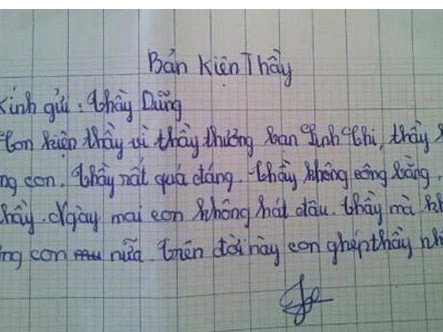 Bản Kiện Thầy
Kính gửi: thầy Dũng
Con kiện thầy vì thầy thương bạn Linh Chi, thầy
ng con. thầy nất quá đáng. thầy không công bằng.
thầy. Ngày mai con không hát đâu. thầy mà
ng con nữa. trên đời này con ghép thầy